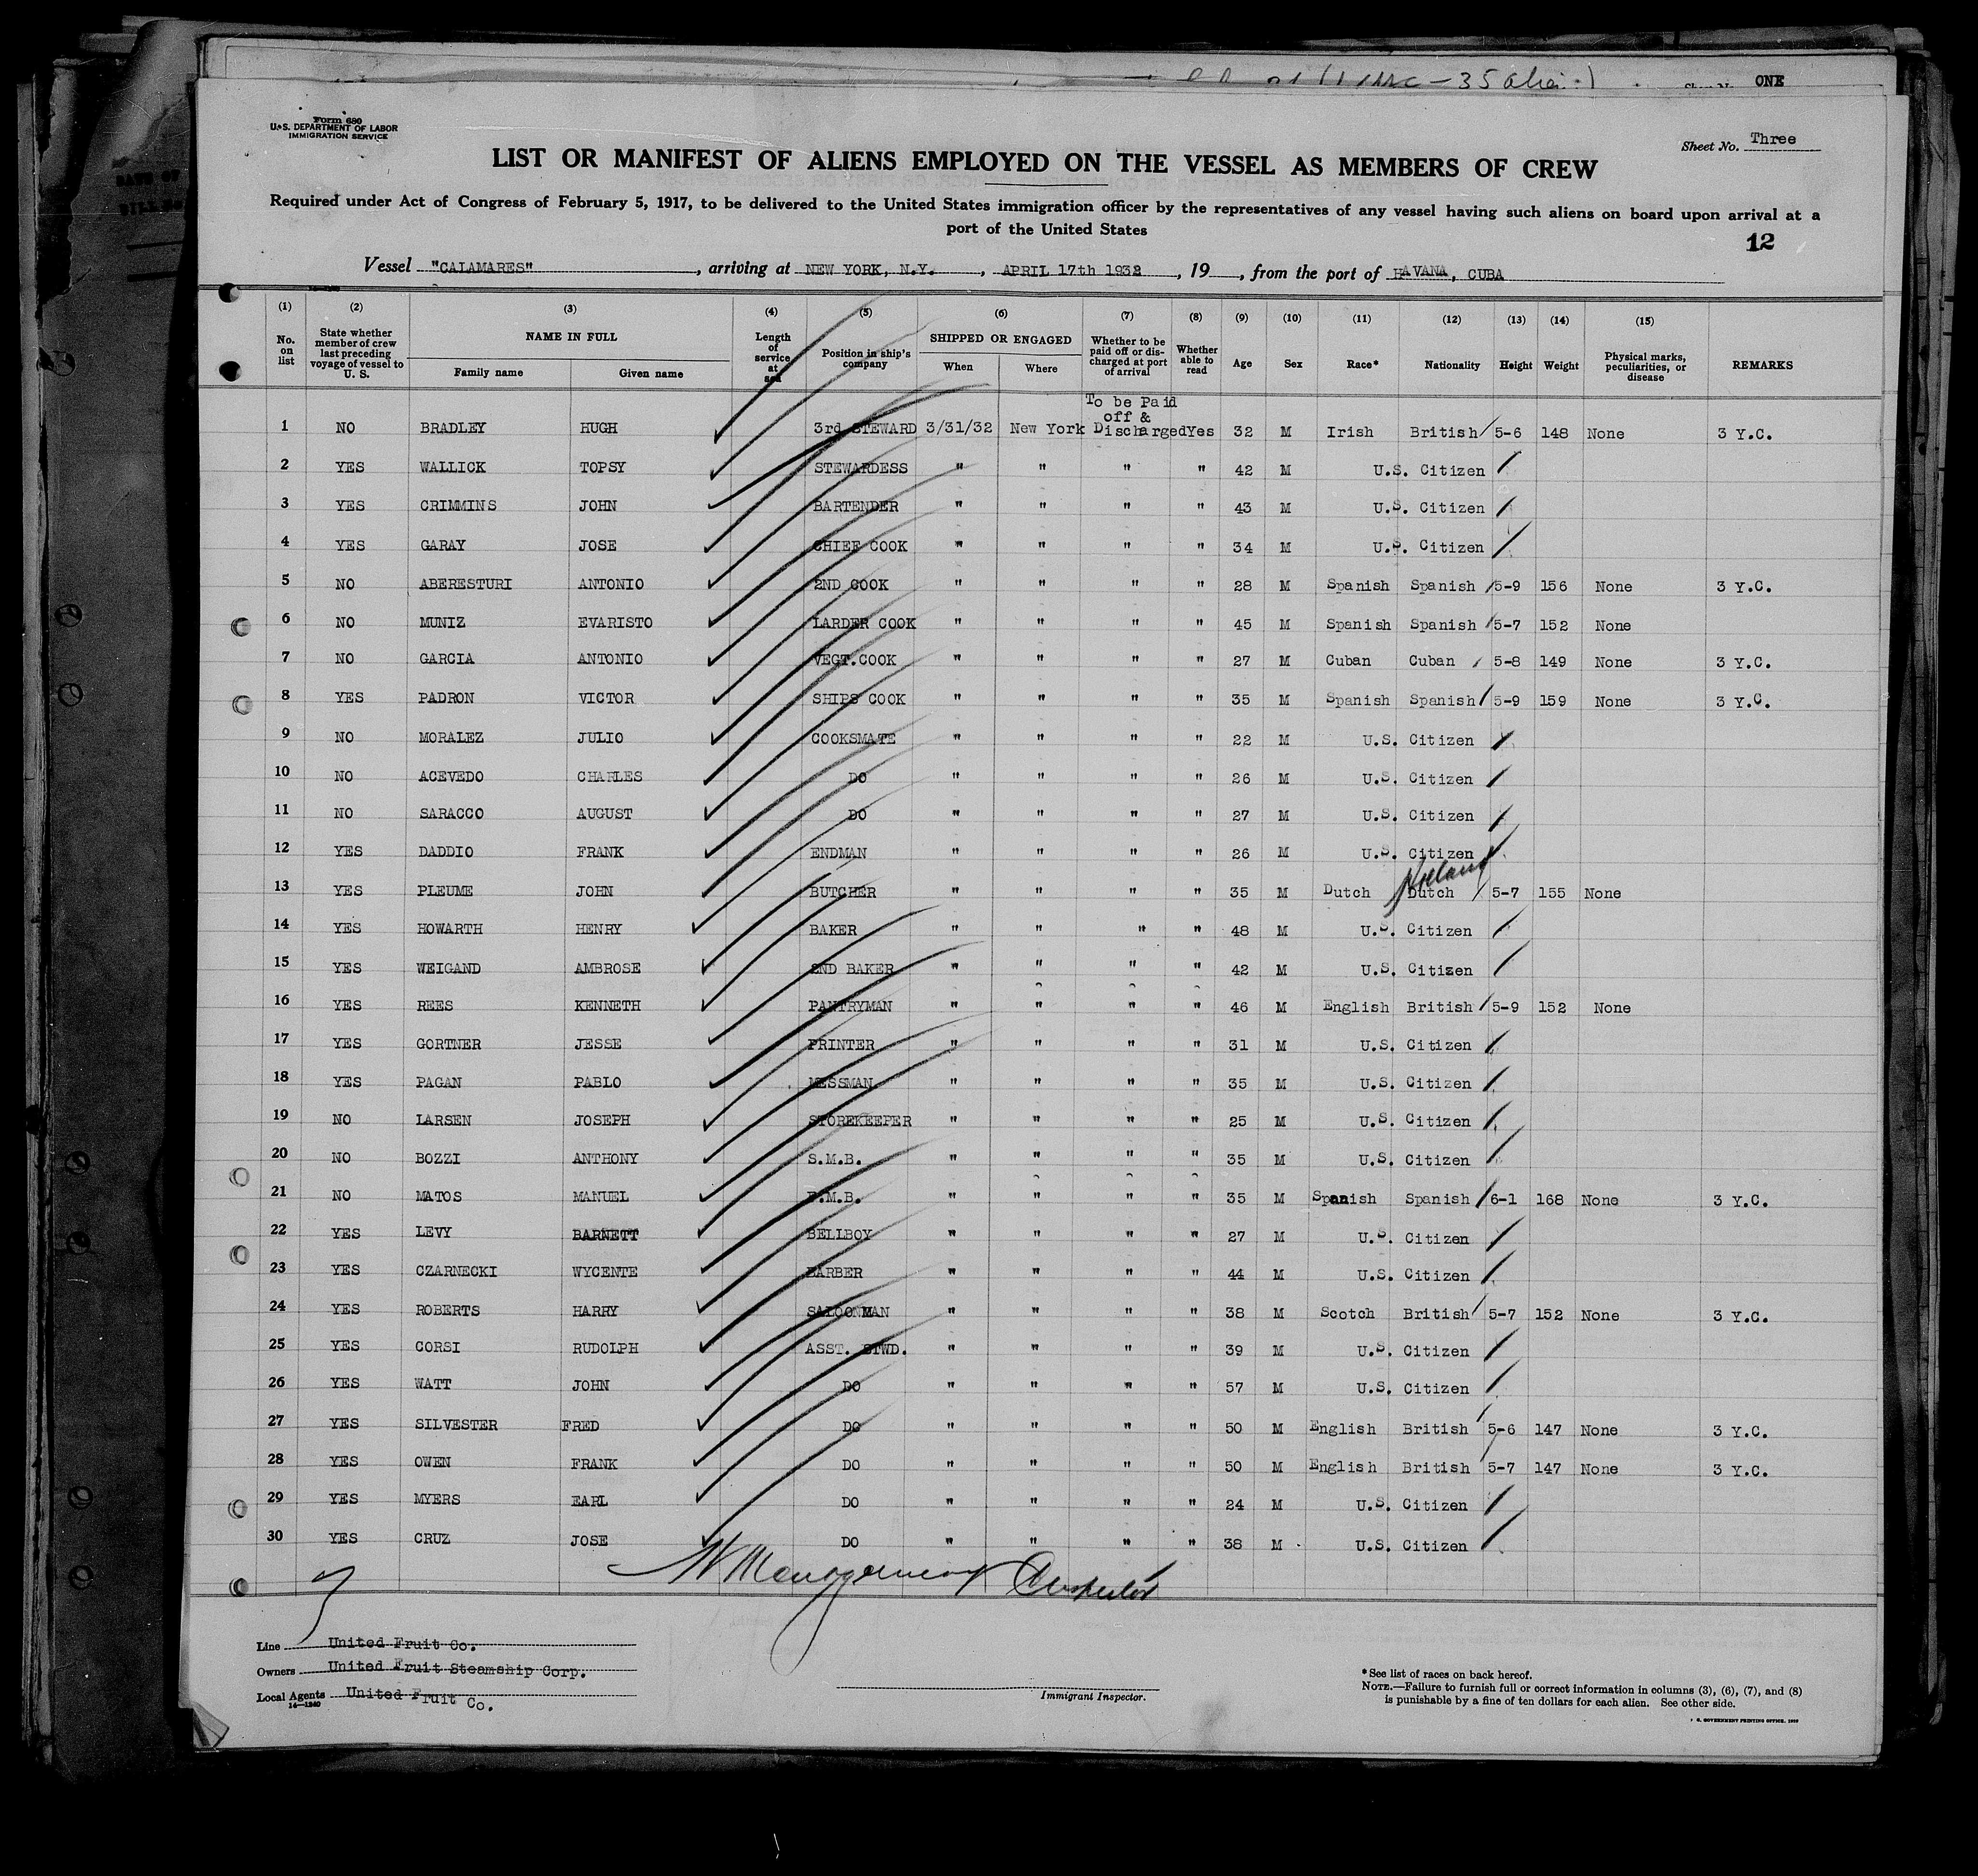 ONE
Form 680
U.S. DEPARTMENT OF LABOR
IMMIGRATION SERVICE
Sheet No. Three
LIST OR MANIFEST OF ALIENS EMPLOYED ON THE VESSEL AS MEMBERS OF CREW
Required under Act of Congress of February 5, 1917, to be delivered to the United States immigration officer by the representatives of any vessel having such aliens on board upon arrival at a
port of the United States
12
Vessel "CALAMARES", arriving at NEW YORK, N.Y., APRIL 17th 1932, 19, from the port of HAVANA, CUBA
(1) (2) (3) (4) (5) (6) (7) (8) (9) (10) (11) (12) (13) (14) (15)
No. on list State whether member of crew last preceding voyage of vessel to U. S. NAME IN FULL Family name Given name Length of service at sea Position in ship's company SHIPPED OR ENGAGED When Where Whether to be paid off or discharged at port of arrival Whether able to read Age Sex Race* Nationality Height Weight Physical marks, peculiarities, or disease REMARKS
1 NO BRADLEY HUGH 3rd STEWARD 3/31/32 New York To be Paid off & Discharged Yes 32 M Irish British 5-6 148 None 3 Y.C.
2 YES WALLICK TOPSY STEWARDESS " " " " 42 M U.S. Citizen
3 YES CRIMMINS JOHN BARTENDER " " " " 43 M U.S. Citizen
4 YES GARAY JOSE CHIEF COOK " " " " 34 M U.S. Citizen
5 NO ABERESTURI ANTONIO 2ND COOK " " " " 28 M Spanish Spanish 5-9 156 None 3 Y.C.
6 NO MUNIZ EVARISTO LARDER COOK " " " " 45 M Spanish Spanish 5-7 152 None
7 NO GARCIA ANTONIO VEGT.COOK " " " " 27 M Cuban Cuban 5-8 149 None 3 Y.C.
8 YES PADRON VICTOR SHIPS COOK " " " " 35 M Spanish Spanish 5-9 159 None 3 Y.C.
9 NO MORALEZ JULIO COOKSMATE " " " " 22 M U.S. Citizen
10 NO ACEVEDO CHARLES DO " " " " 26 M U.S. Citizen
11 NO SARACCO AUGUST DO " " " " 27 M U.S. Citizen
12 YES DADDIO FRANK ENDMAN " " " " 26 M U.S. Citizen
13 YES PLEUME JOHN BUTCHER " " " " 35 M Dutch Dutch 5-7 155 None
14 YES HOWARTH HENRY BAKER " " " " 48 M U.S. Citizen
15 YES WEIGAND AMBROSE 2ND BAKER " " " " 42 M U.S. Citizen
16 YES REES KENNETH PANTRYMAN " " " " 46 M English British 5-9 152 None
17 YES GORTNER JESSE PRINTER " " " " 31 M U.S. Citizen
18 YES PAGAN PABLO MESSMAN " " " " 35 M U.S. Citizen
19 NO LARSEN JOSEPH STOREKEEPER " " " " 25 M U.S. Citizen
20 NO BOZZI ANTHONY S.M.B. " " " " 35 M U.S. Citizen
21 NO MATOS MANUEL " " " " 35 M Spanish Spanish 6-1 168 None 3 Y.C.
22 YES LEVY BARNETT BELLBOY " " " " 27 M U.S. Citizen
23 YES CZARNECKI WYCENTE BARBER " " " " 44 M U.S. Citizen
24 YES ROBERTS HARRY SALOONMAN " " " " 38 M Scotch British 5-7 152 None 3 Y.C.
25 YES CORSI RUDOLPH ASST. STWD. " " " " 39 M U.S. Citizen
26 YES WATT JOHN DO " " " " 57 M U.S. Citizen
27 YES SILVESTER FRED DO " " " " 50 M English British 5-6 147 None 3 Y.C.
28 YES OWEN FRANK DO " " " " 50 M English British 5-7 147 None 3 Y.C.
29 YES MYERS EARL DO " " " " 24 M U.S. Citizen
30 YES CRUZ JOSE DO " " " " 38 M U.S. Citizen
Line United Fruit Co.
Owners United Fruit Steamship Corp.
Local Agents United Fruit Co.
14—1240
Immigrant Inspector.
*See list of races on back hereof.
NOTE.—Failure to furnish full or correct information in columns (3), (6), (7), and (8)
is punishable by a fine of ten dollars for each alien. See other side.